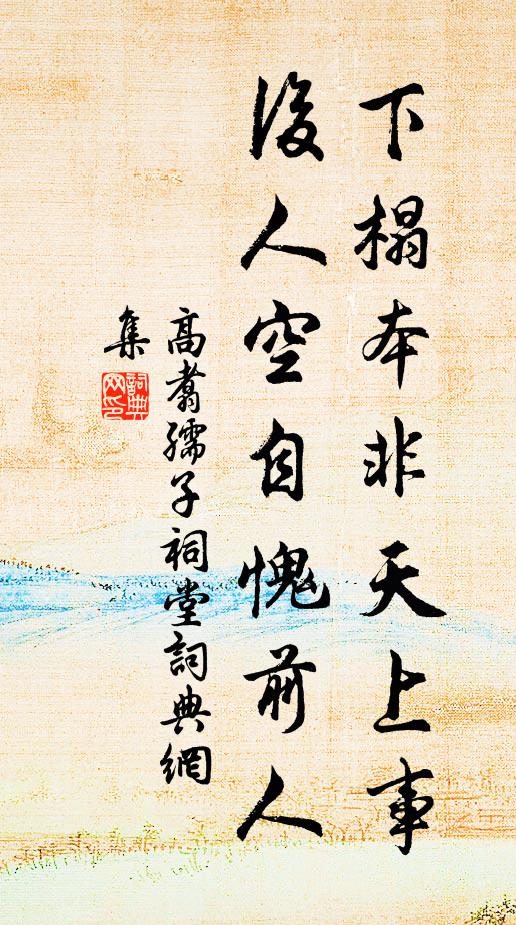 下榻本非天上事
後人空自愧前人
高翥孺子祠堂詞典網
集
詞典网印